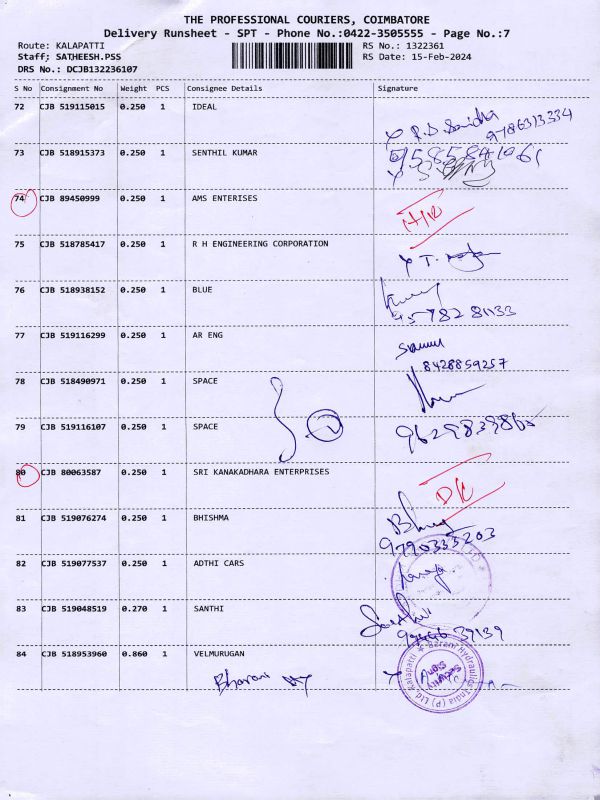 THE PROFESSIONAL COURIERS, COIMBATORE
Delivery Runsheet - SPT - Phone No.:0422-3505555 - Page No.:7
Route: KALAPATTI RS No.: 1322361
Staff: SATHEESH.PSS RS Date: 15-Feb-2024
DRS No.: DCJB132236107
S No Consignment No Weight PCS Consignee Details Signature
72 CJB 519115015 0.250 1 IDEAL
9786313334
73 CJB 518915373 0.250 1 SENTHIL KUMAR
74 CJB 89450999 0.250 1 AMS ENTERISES
75 CJB 518785417 0.250 1 R H ENGINEERING CORPORATION
76 CJB 518938152 0.250 1 BLUE
77 CJB 519116299 0.250 1 AR ENG
8428859257
78 CJB 518490971 0.250 1 SPACE
79 CJB 519116107 0.250 1 SPACE
2
80 CJB 80063587 0.250 1 SRI KANAKADHARA ENTERPRISES
81 CJB 519076274 0.250 1 BHISHMA
9790333203
82 CJB 519077537 0.250 1 ADTHI CARS
83 CJB 519048519 0.270 1 SANTHI
84 CJB 518953960 0.860 1 VELMURUGAN
Bharani
Barani Hydraulics India (P) Ltd. Kalapatti